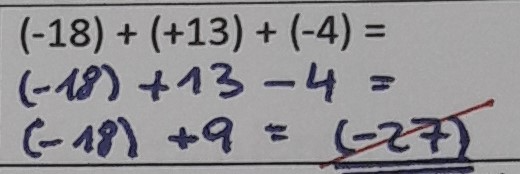 (-18) + (+13) + (-4) =
(-18) +13 -4 =
(-18) +9 = (-27)